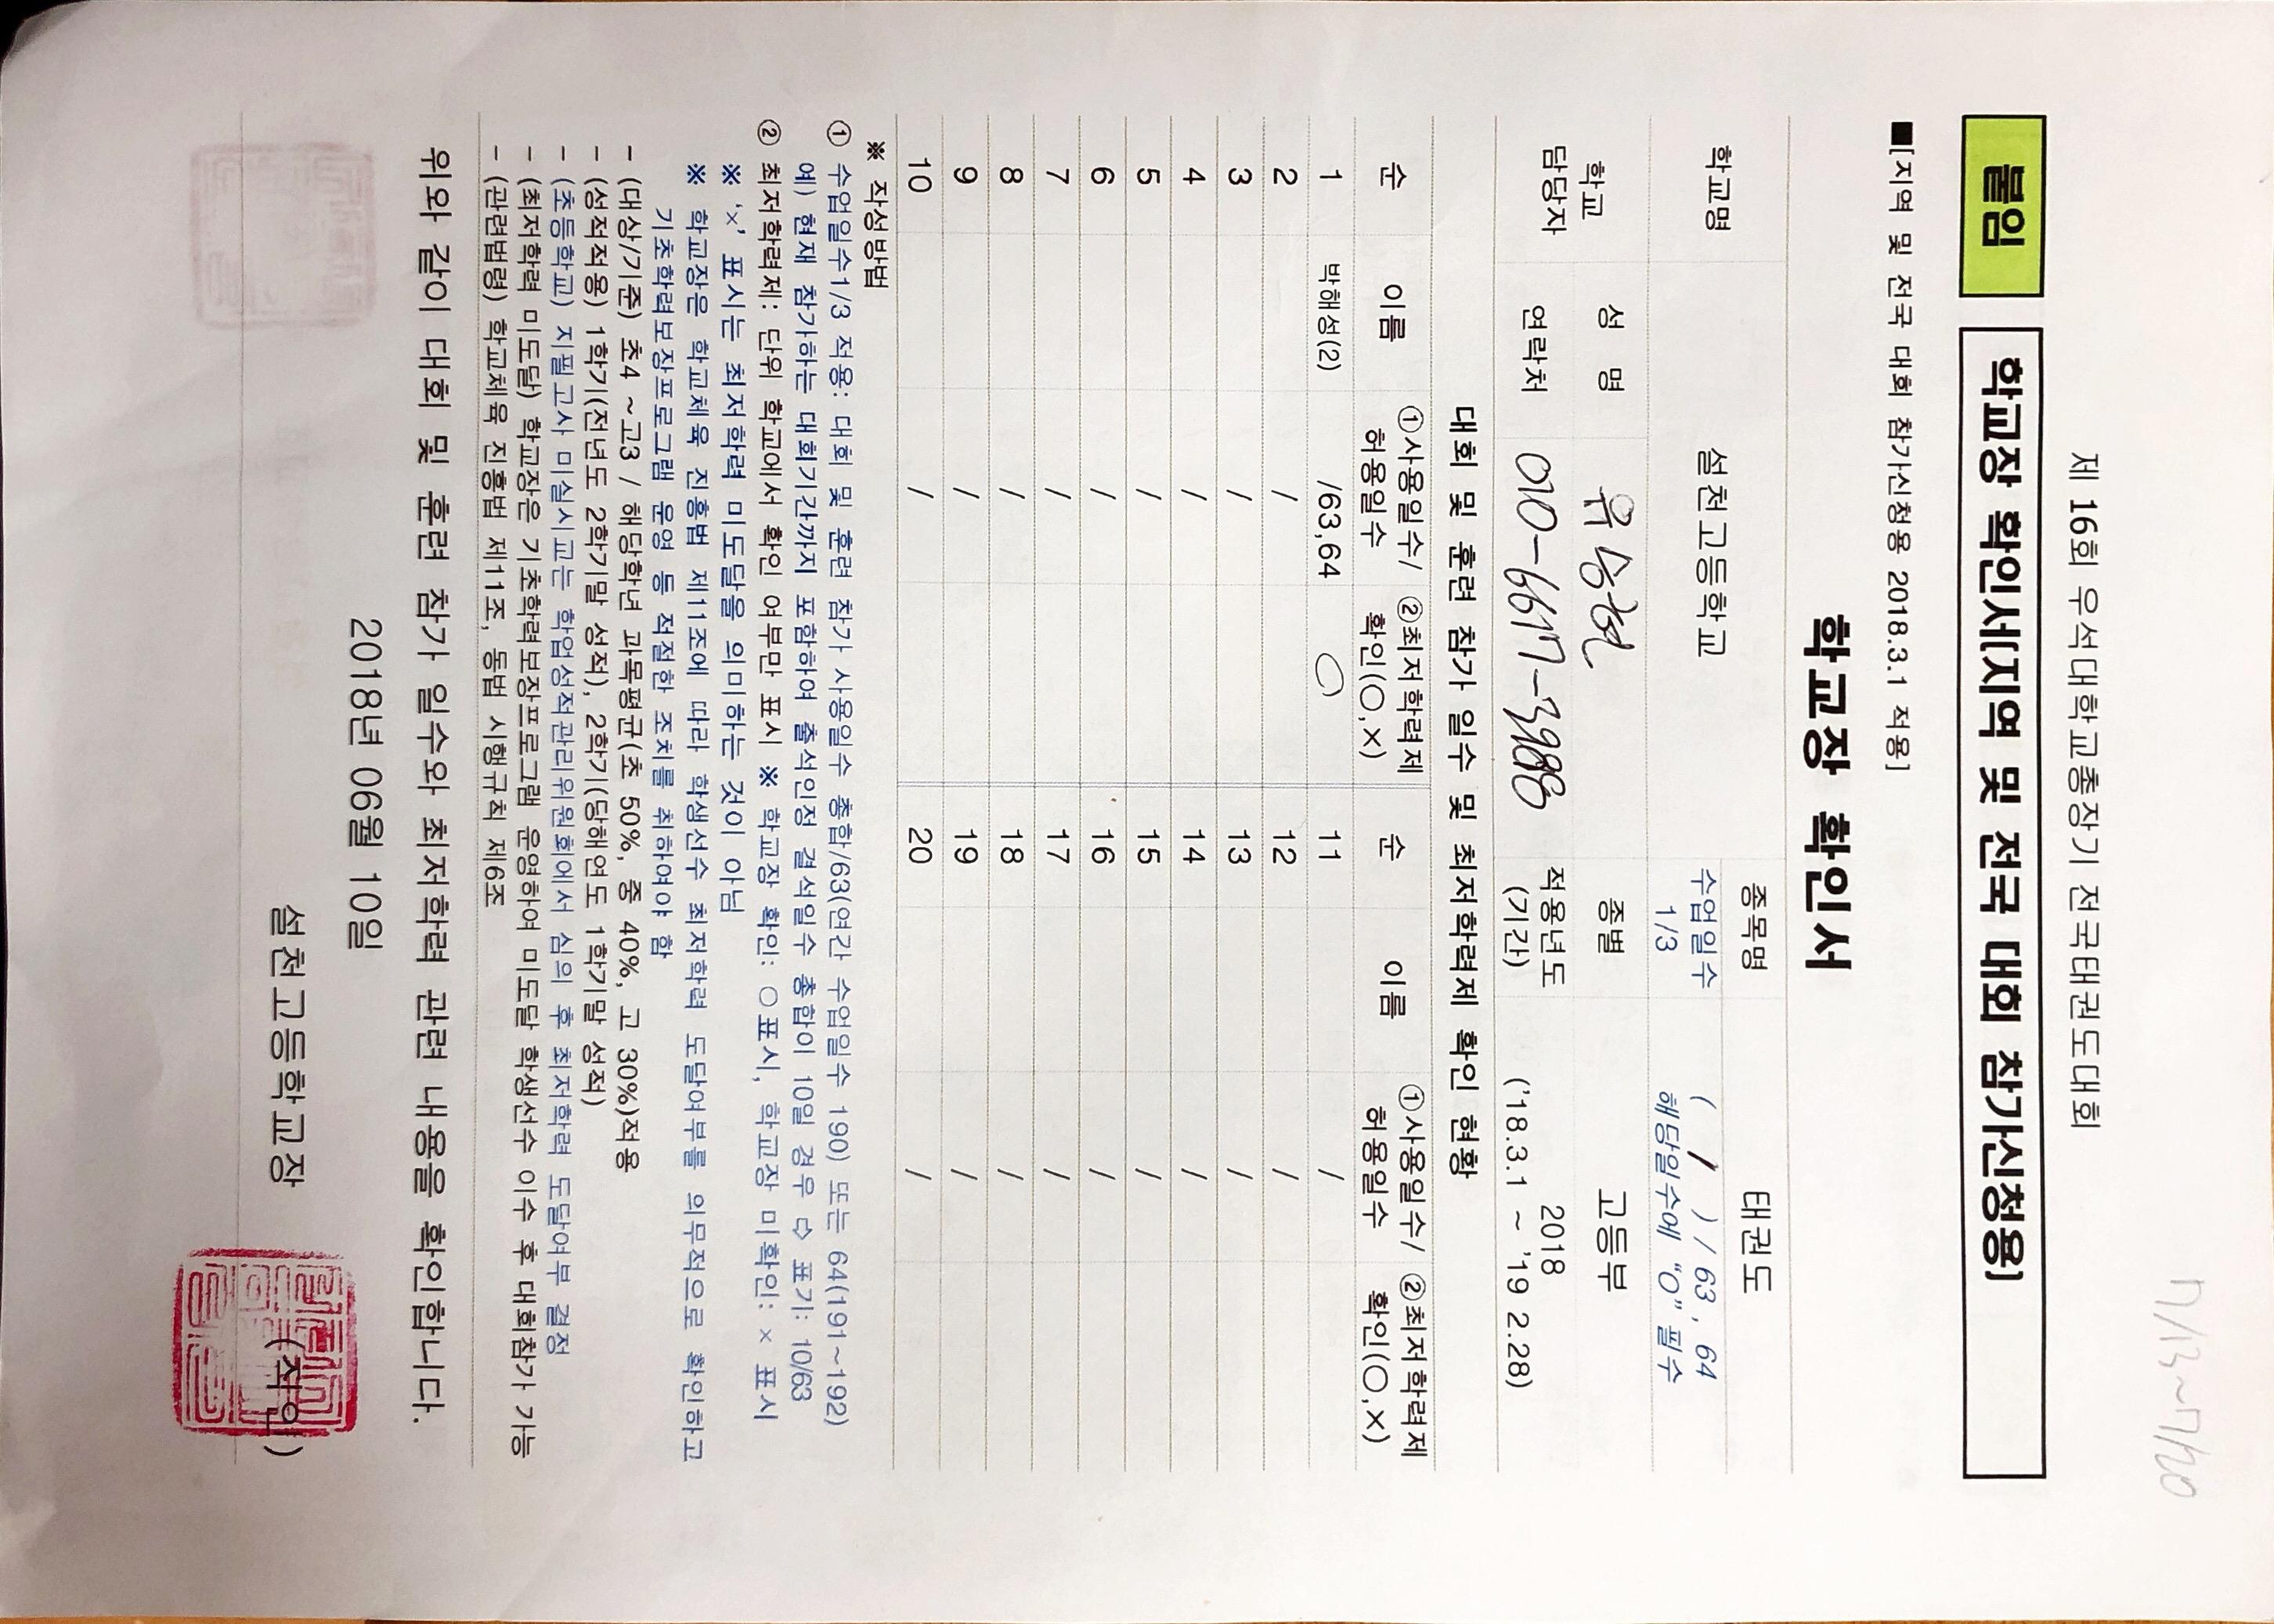 7/13~7/20
제 16회 우석대학교총장기 전국태권도대회
붙임 학교장 확인서(지역 및 전국 대회 참가신청용)
■[지역 및 전국 대회 참가신청용 2018.3.1 적용]
학교장 확인서
학교명 설천고등학교 종목명 태권도
수업일수 1/3 ( / ) / 63, 64
해당일수에 "O" 필수
학교 담당자 성 명 종별 고등부
연락처 010-6617-3988 적용년도 (기간) 2018
('18.3.1 ~ '19 2.28)
대회 및 훈련 참가 일수 및 최저학력제 확인 현황
순 이름 ①사용일수/허용일수 ②최저학력제 확인(○,×) 순 이름 ①사용일수/허용일수 ②최저학력제 확인(○,×)
1 박해성(2) /63,64 ○ 11 /
2 / 12 /
3 / 13 /
4 / 14 /
5 / 15 /
6 / 16 /
7 / 17 /
8 / 18 /
9 / 19 /
10 / 20 /
※ 작성방법
① 수업일수1/3 적용: 대회 및 훈련 참가 사용일수 총합/63(연간 수업일수 190) 또는 64(191~192)
예) 현재 참가하는 대회기간까지 포함하여 출석인정 결석일수 총합이 10일 경우 ⇨ 표기: 10/63
② 최저학력제: 단위 학교에서 확인 여부만 표시 ※ 학교장 확인: ○표시, 학교장 미확인: × 표시
※ '×' 표시는 최저학력 미도달을 의미하는 것이 아님
※ 학교장은 학교체육 진흥법 제11조에 따라 학생선수 최저학력 도달여부를 의무적으로 확인하고
기초학력보장프로그램 운영 등 적절한 조치를 취하여야 함
- (대상/기준) 초4 ~고3 / 해당학년 과목평균(초 50%, 중 40%, 고 30%)적용
- (성적적용) 1학기(전년도 2학기말 성적), 2학기(당해연도 1학기말 성적)
- (초등학교) 지필고사 미실시교는 학업성적관리위원회에서 심의 후 최저학력 도달여부 결정
- (최저학력 미도달) 학교장은 기초학력보장프로그램 운영하여 미도달 학생선수 이수 후 대회참가 가능
- (관련법령) 학교체육 진흥법 제11조, 동법 시행규칙 제6조
위와 같이 대회 및 훈련 참가 일수와 최저학력 관련 내용을 확인합니다.
2018년 06월 10일
설천고등학교장 (직인)